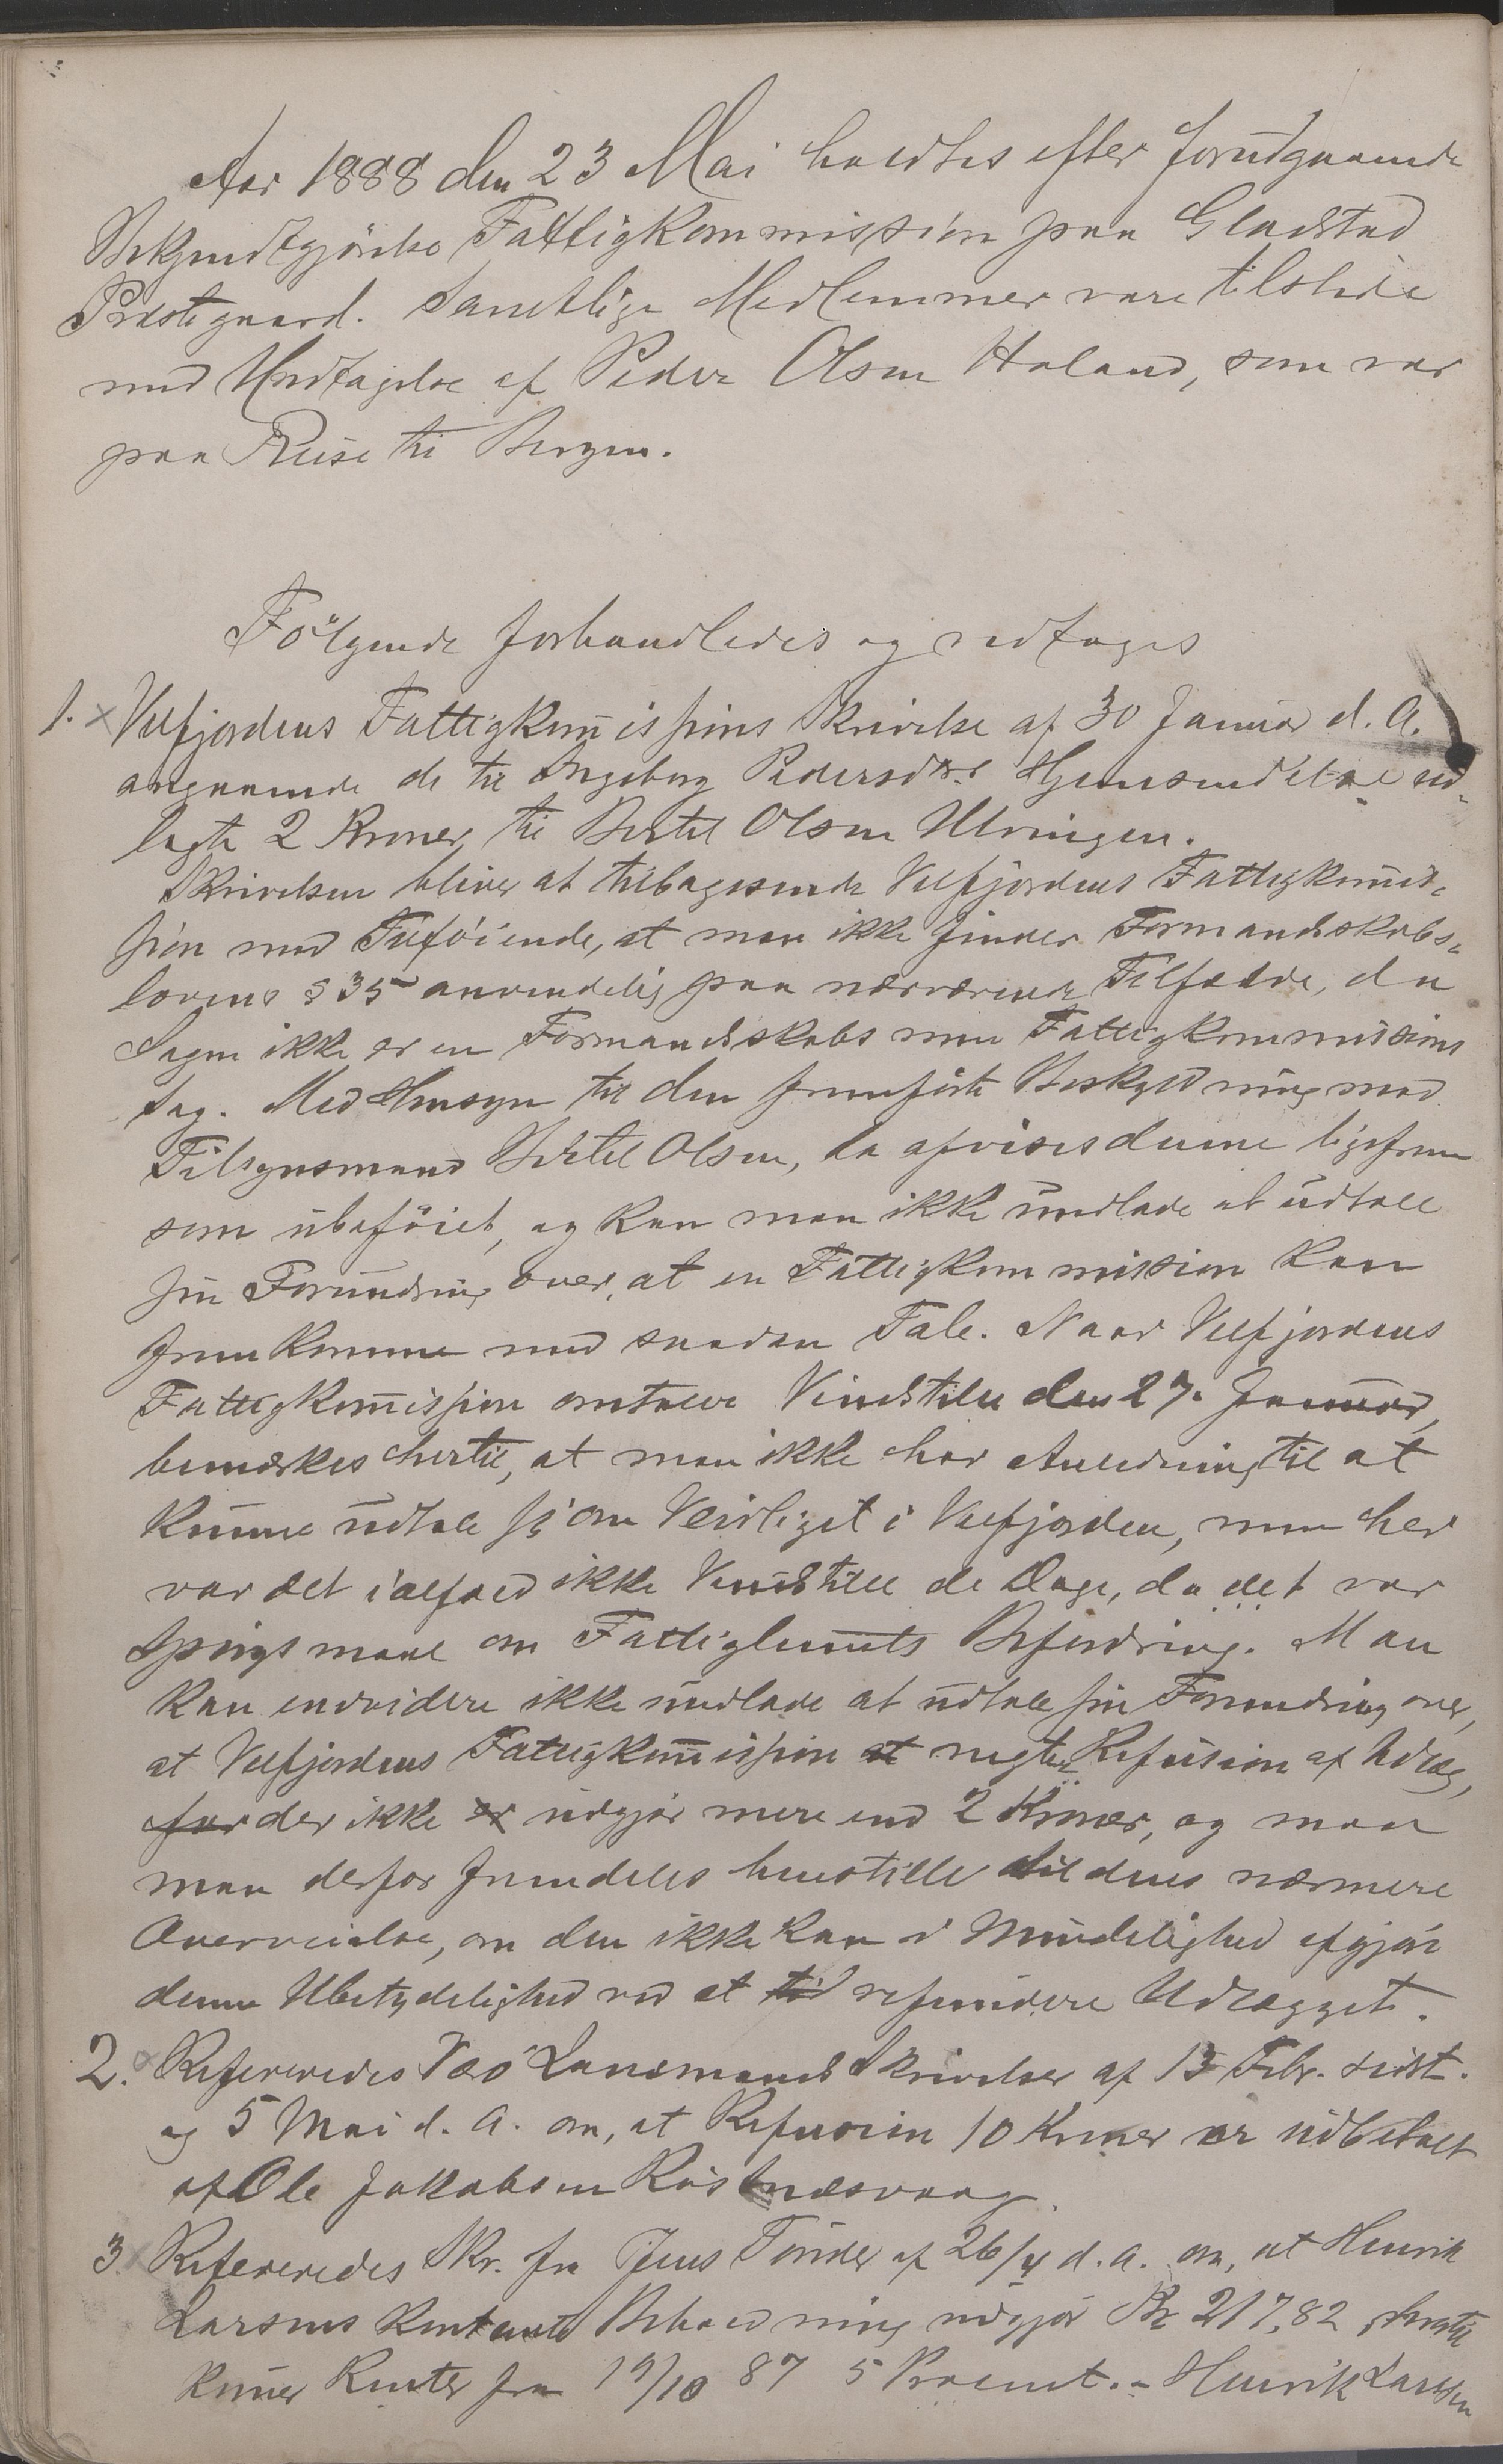 Aar 1888 den 23 Mai holdtes efter forudgaaende
Bekjendtgjörelse Fattigkommission paa Gladstad
Præstegaard. Samtlige Medlemmer vare tilstede
med Undtagelse af Peder Olsen Holand, som var
paa Reise til Bergen.
Fölgende forhandledes og vedtoges
1. Velfjordens Fattigkommissions Skrivelse af 30 Januar d. A.
angaaende de til Ingeborg Pedersdtr. ud-
lagte 2 Kroner til Bertel Olsen Ulvingen.
Skrivelsen bliver at tilbagesende Velfjordens Fattigkommis-
sion med Tilföiende, at man ikke finder Formandskabs-
lovens § 35 anvendelig paa nærværende Tilfælde, da
Sagen ikke er en Formandskabs men Fattigkommissions
Sag. Med Hensyn til den fremförte Beskyldning mod
Tilsynsmand Bertel Olsen, da afvises denne ligefrem
som uböföiet, og kan man ikke undlade at udtale
sin Forundring over, at en Fattigkommission kan
fremkomme med saadan Tale. Naar Velfjordens
Fattigkommission omtaler Vindstille den 27. Januar,
bemærkes hertil, at man ikke har Anledning til at
kunne udtale sig om Veirliget i Velfjorden, men her
var det ialfald ikke Vindstille de Dage, da det var
Spörgsmaal om Fattiglemmets Befordring. Man
kan endvidere ikke undlade at udtale sin Forundring over,
at Velfjordens Fattigkommission at negter Refusion af Udlæg,
for der ikke er udgjör mere end 2 Kroner, og maa
man derfor fremdeles henstille til dens nærmere
Overveielse, om den ikke kan i Mindelighed afgjöre
denne Ubetydelighed ved at refundere Udlægget.
2. Refereredes Værö Lensmands Skrivelser af 13 Febr. sidst.
og 5 Mai d. A. om, at Refusion 10 Kroner er udbetalt
af Ole Jakobsen Röstnæsvaag.
3. Refereredes Skr. fra Jens Tönder af 26/4 d. a. om, at Henrik
Larsens kontante Beholdning udgjör Kr 217,82, hvortil
kommer Renter fra 19/10 87 5 Procent. - Henrik Larsen